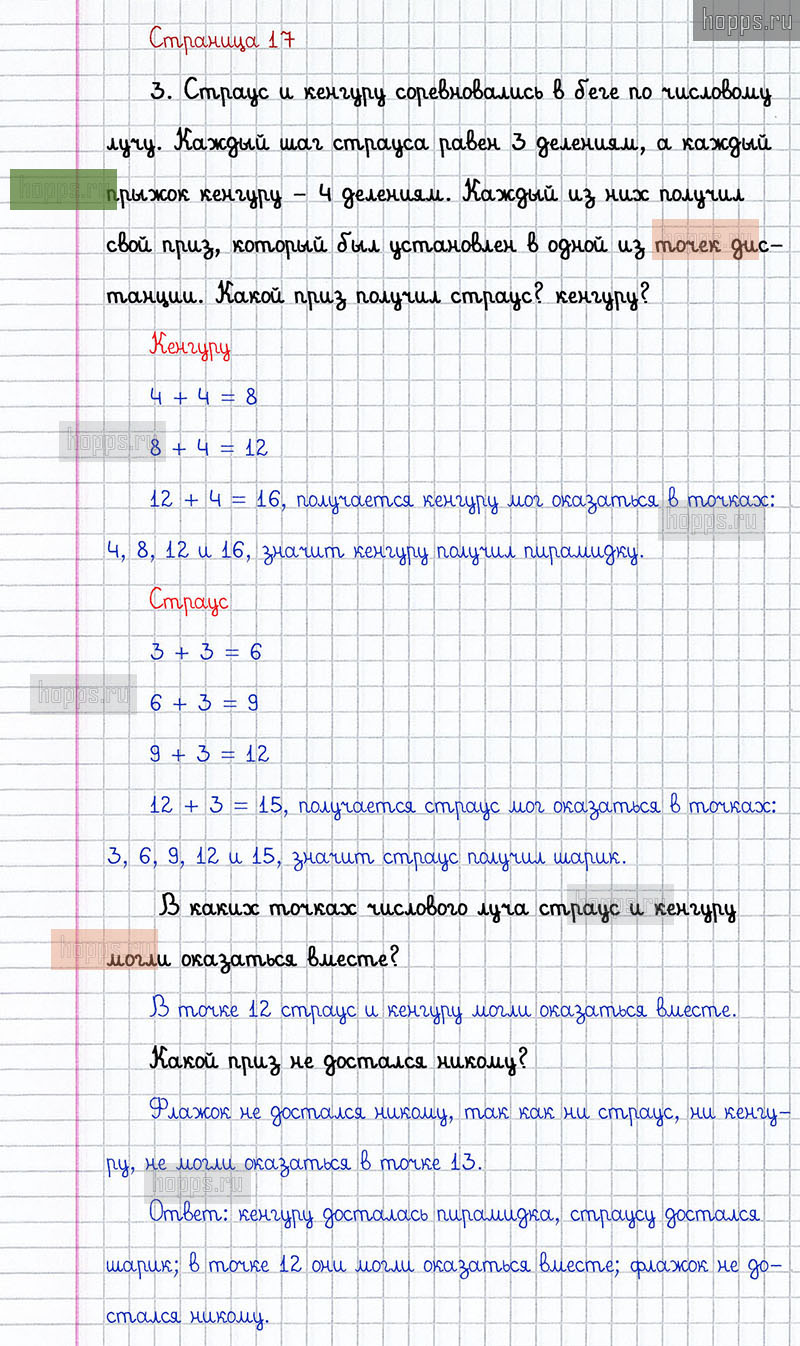 hopps.ru
Страница 17
3. Страус и кенгуру соревновались в беге по числовому
лучу. Каждый шаг страуса равен 3 делениям, а каждый
hopps.ru
прыжок кенгуру – 4 делениям. Каждый из них получил
свой приз, который был установлен в одной из точек дис-
hopps.ru
танции. Какой приз получил страус? кенгуру?
Кенгуру
4 + 4 = 8
hopps.ru
8 + 4 = 12
12 + 4 = 16, получается кенгуру мог оказаться в точках:
hopps.ru
4, 8, 12 и 16, значит кенгуру получил пирамидку.
Страус
3 + 3 = 6
hopps.ru
6 + 3 = 9
9 + 3 = 12
12 + 3 = 15, получается страус мог оказаться в точках:
3, 6, 9, 12 и 15, значит страус получил шарик.
В каких точках числового луча страус и кенгуру
hopps.ru
hopps.ru
могли оказаться вместе?
В точке 12 страус и кенгуру могли оказаться вместе.
Какой приз не достался никому?
Флажок не достался никому, так как ни страус, ни кенгу-
ру, не могли оказаться в точке 13.
hopps.ru
Ответ: кенгуру досталась пирамидка, страусу достался
шарик; в точке 12 они могли оказаться вместе; флажок не до-
стался никому.